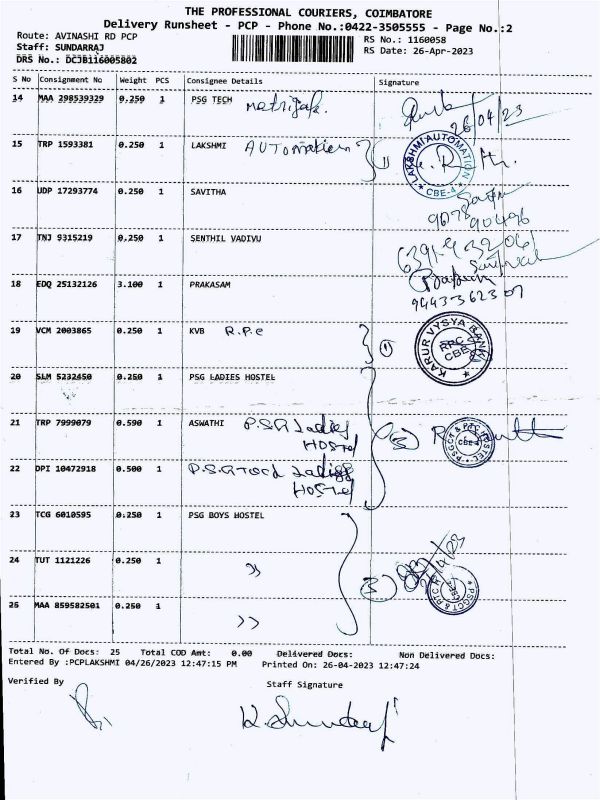 THE PROFESSIONAL COURIERS, COIMBATORE
Delivery Runsheet - PCP - Phone No.:0422-3505555 - Page No.:2
Route: AVINASHI RD PCP
RS No.: 1160058
Staff: SUNDARRAJ
RS Date: 26-Apr-2023
DRS No.: DCJB116005802
S No Consignment No Weight PCS Consignee Details Signature
14 MAA 298539329 0.250 1 PSG TECH
26/04/23
15 TRP 1593381 0.250 1 LAKSHMI AUTOMATION
LAKSHMI AUTOMATION
CBE-4
16 UDP 17293774 0.250 1 SAVITHA
17 TNJ 9315219 0.250 1 SENTHIL VADIVU
18 EDQ 25132126 3.100 1 PRAKASAM
19 VCM 2003865 0.250 1 KVB R.P.C
1
KARUR VYSYA BANK
RPC
CBE
20 SLM 5232450 0.250 1 PSG LADIES HOSTEL
21 TRP 7999079 0.590 1 ASWATHI P.S.G Ladies
HOSTEl
3
22 DPI 10472918 0.500 1 P.S.G Tech Ladies
HOSTEl
23 TCG 6010595 0.250 1 PSG BOYS HOSTEL
24 TUT 1121226 0.250 1 "
3
PSGCT & PTC
25 MAA 859582501 0.250 1 "
Total No. Of Docs: 25 Total COD Amt: 0.00 Delivered Docs: Non Delivered Docs:
Entered By :PCPLAKSHMI 04/26/2023 12:47:15 PM Printed On: 26-04-2023 12:47:24
Verified By
Staff Signature